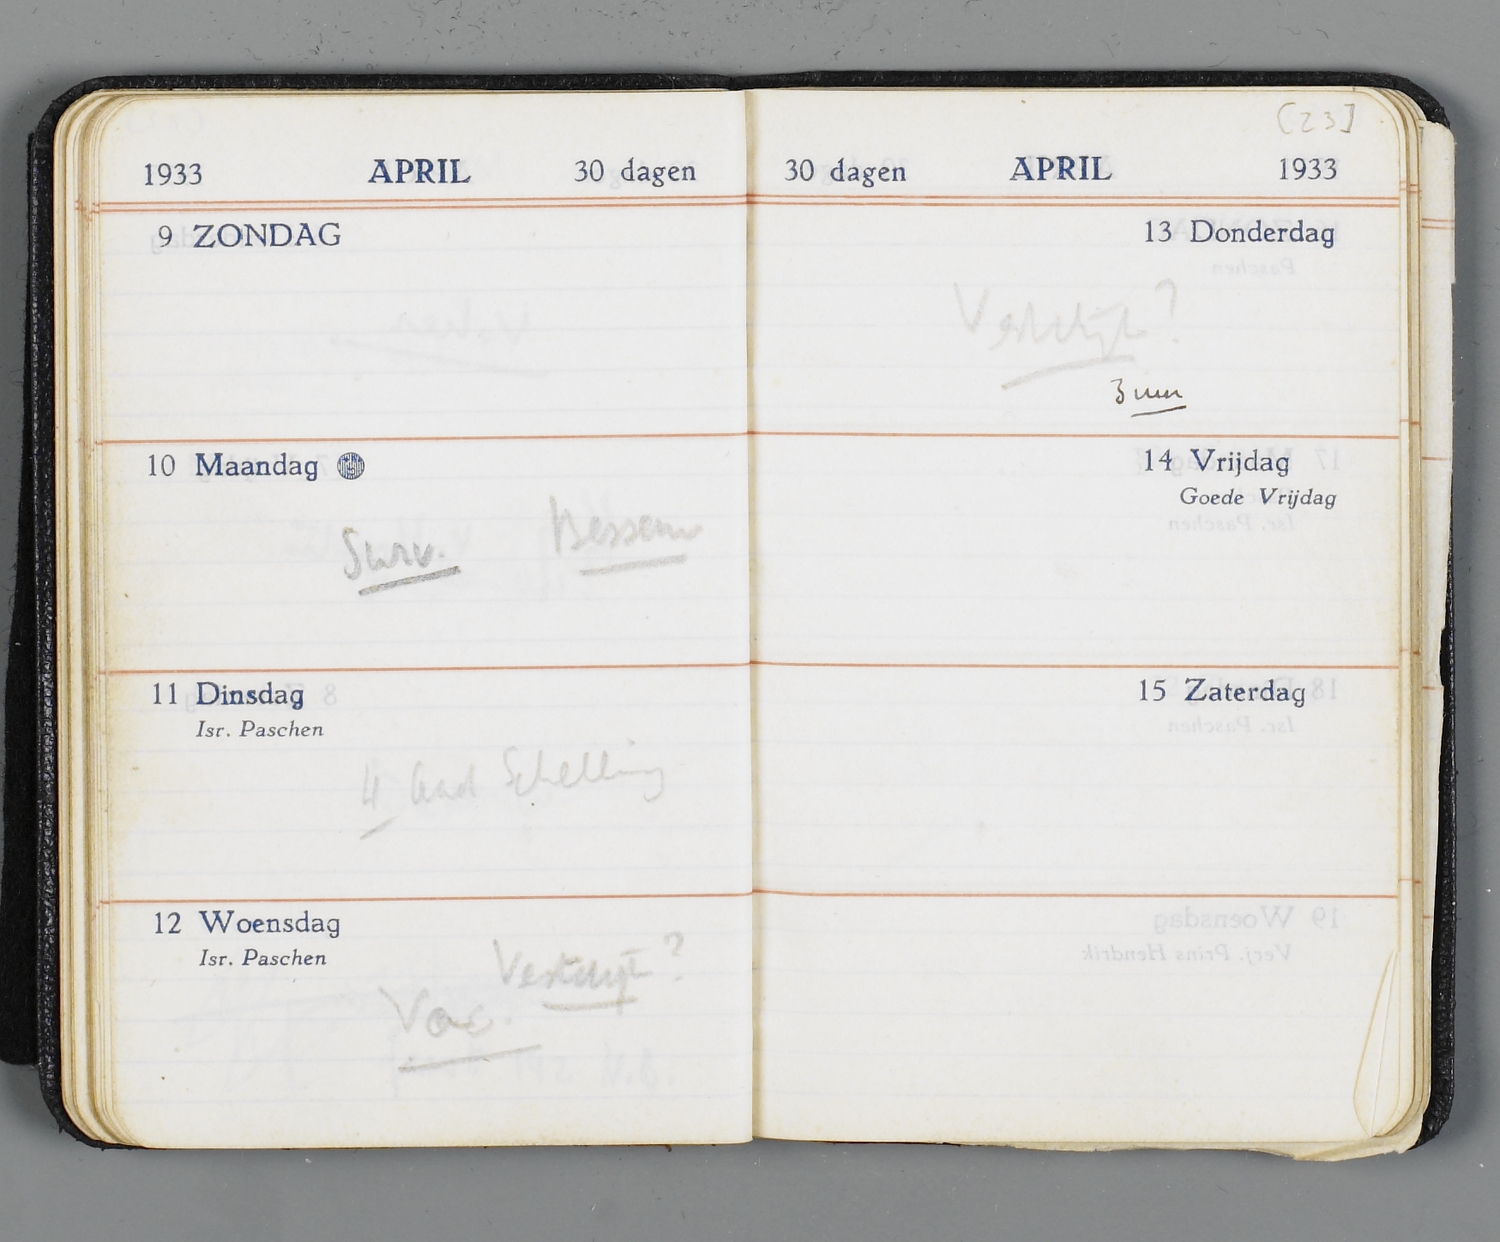 1933 APRIL 30 dagen
9 ZONDAG
10 Maandag
Surv. Bessem
11 Dinsdag
Isr. Paschen
4 Aad Schelling
12 Woensdag
Isr. Paschen
Vac.
[23]
30 dagen APRIL 1933
13 Donderdag
3 uur
14 Vrijdag
Goede Vrijdag
15 Zaterdag